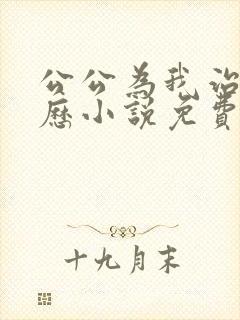 公公為我治
歷小說免費
十九月末